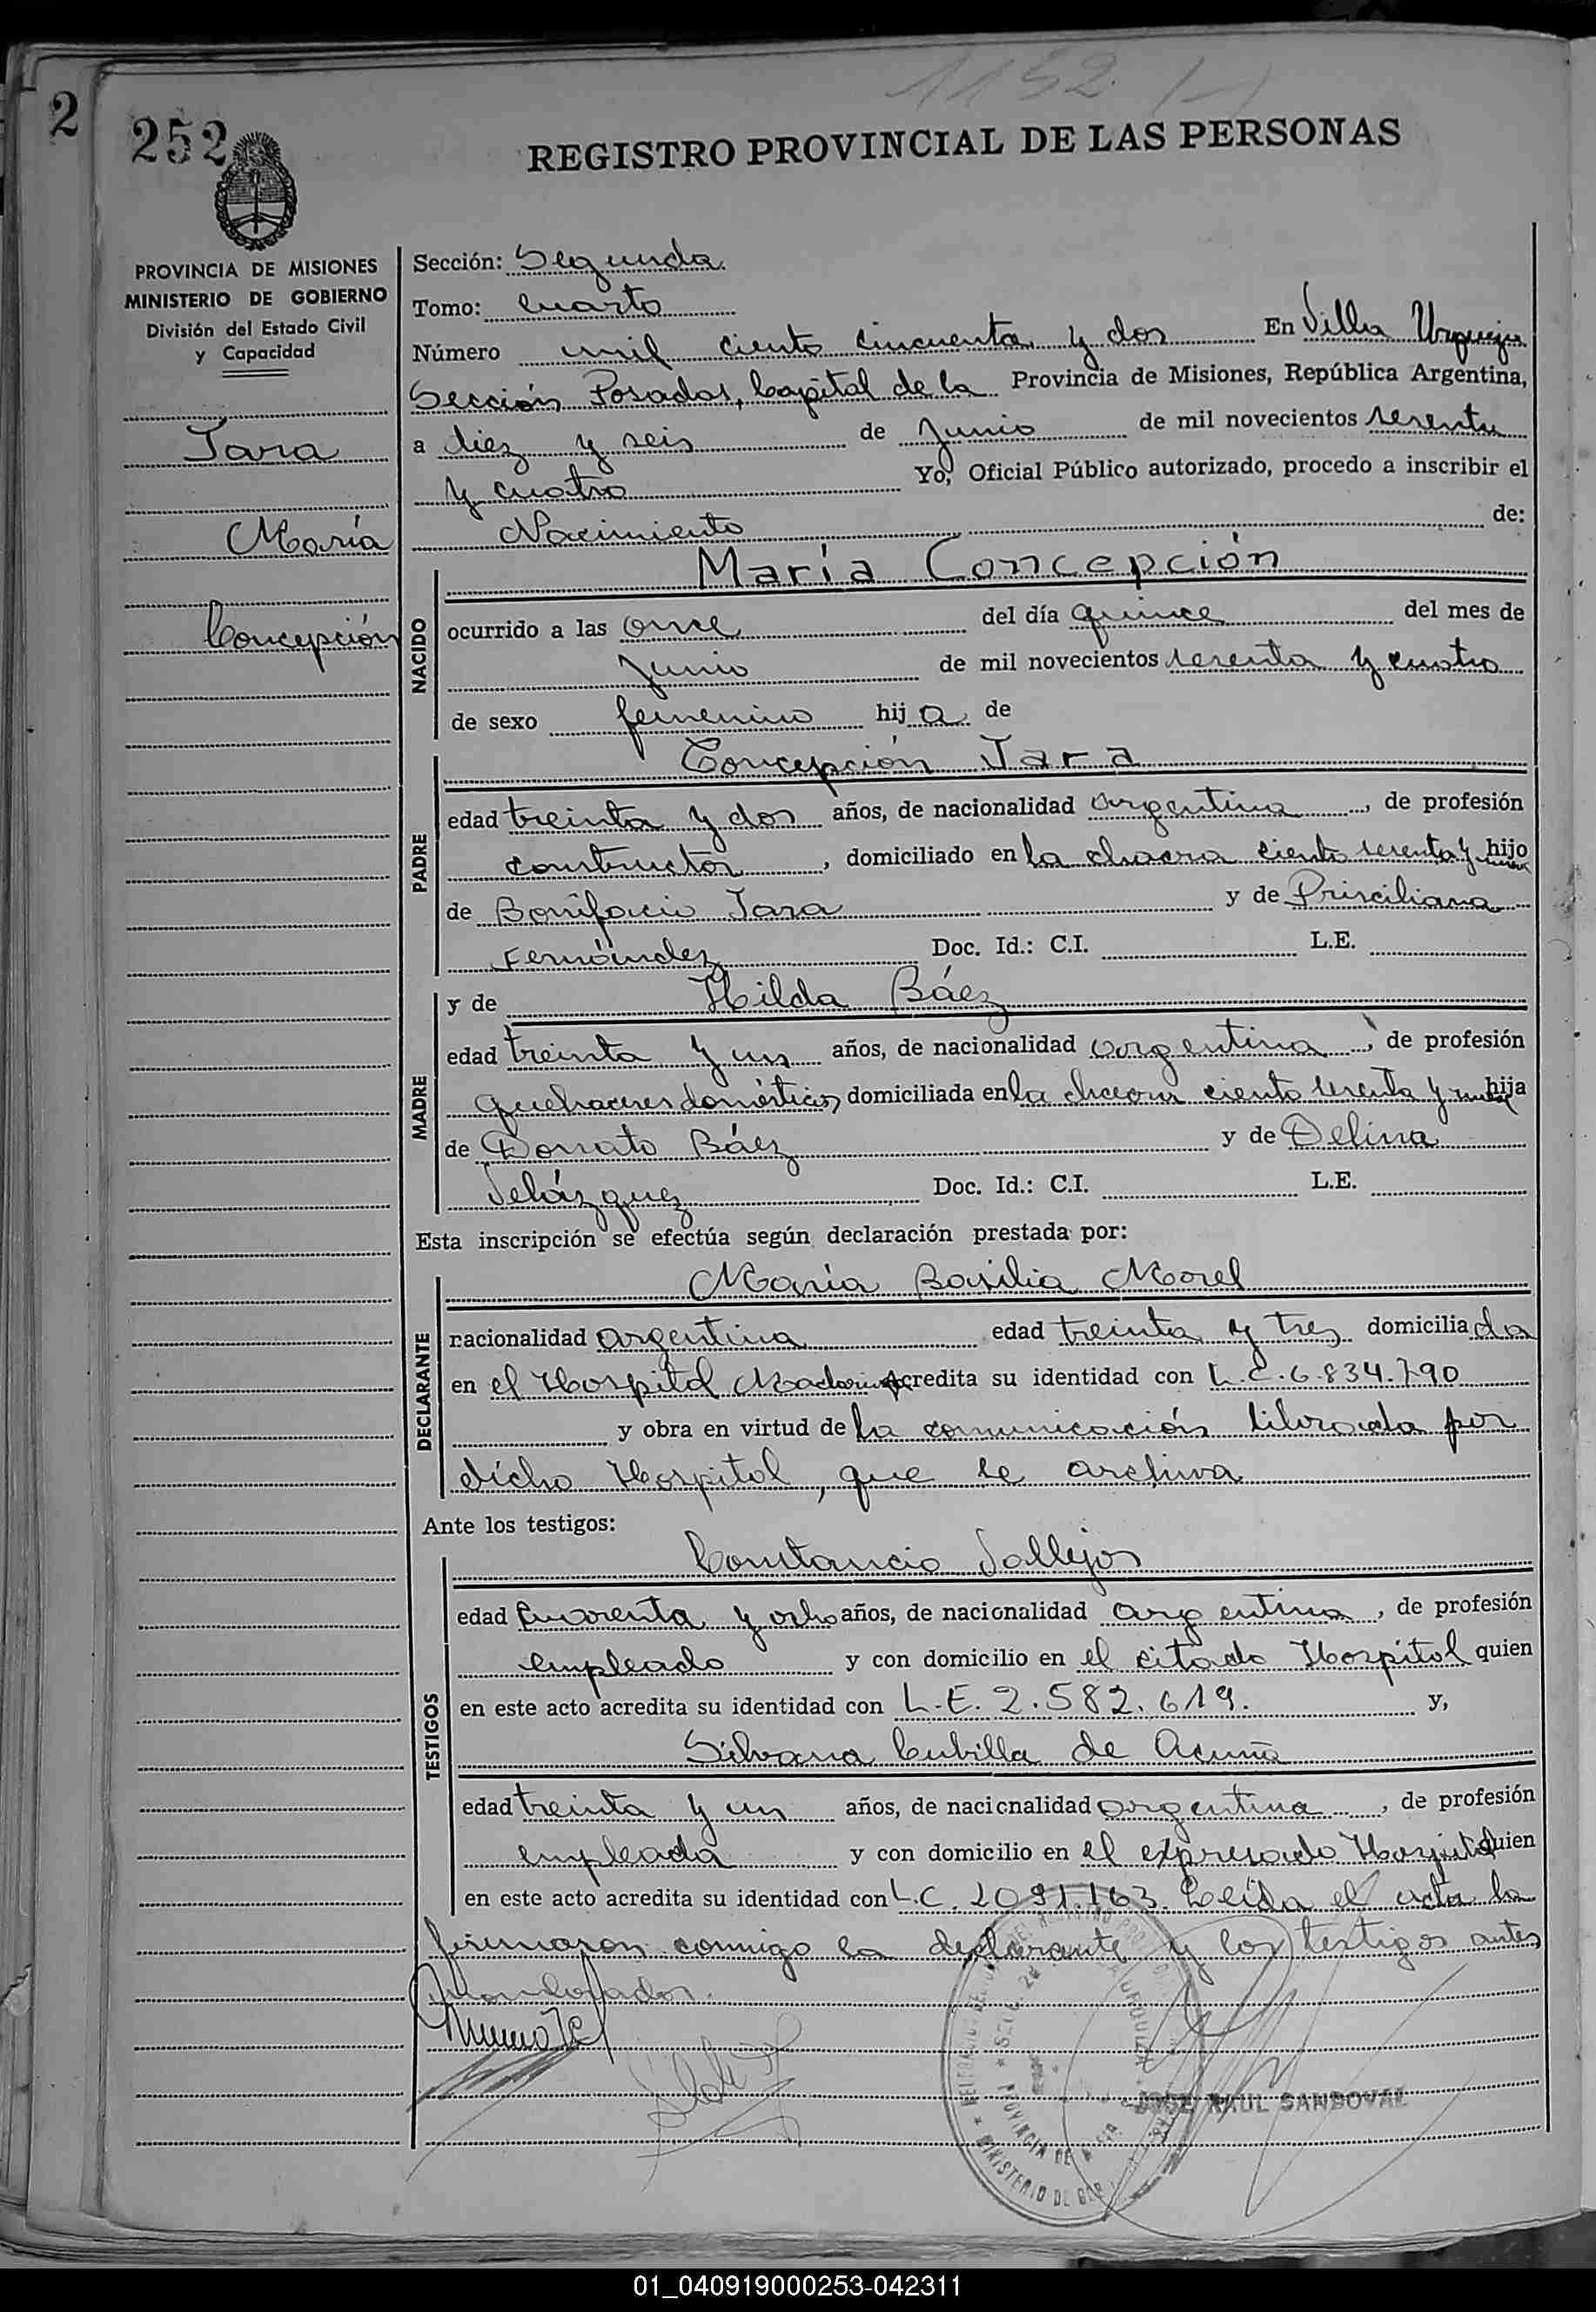 1152
2
252
REGISTRO PROVINCIAL DE LAS PERSONAS
PROVINCIA DE MISIONES
MINISTERIO DE GOBIERNO
División del Estado Civil
y Capacidad
Jara
María
Concepción
Sección: Segunda
Tomo: Cuarto
Número mil ciento cincuenta y dos En Villa Urquiza
Sección Posadas, Capital de la Provincia de Misiones, República Argentina,
a diez y seis de Junio de mil novecientos sesenta
y cuatro Yo, Oficial Público autorizado, procedo a inscribir el
Nacimiento de:
NACIDO
María Concepción
ocurrido a las once del día quince del mes de
Junio de mil novecientos sesenta y cuatro
de sexo femenino hija de
PADRE
Concepción Jara
edad treinta y dos años, de nacionalidad argentina, de profesión
constructor, domiciliado en la chacra ciento sesenta y hijo
de Bonifacio Jara y de Prisciliana
Fernández Doc. Id.: C.I. L.E.
MADRE
y de Hilda Báez
edad treinta y un años, de nacionalidad argentina, de profesión
quehaceres domésticos, domiciliada en la chacra ciento sesenta y hija
de Donato Báez y de Delina
Velázquez Doc. Id.: C.I. L.E.
Esta inscripción se efectúa según declaración prestada por:
DECLARANTE
María Basilia Morel
nacionalidad argentina edad treinta y tres domiciliada
en el Hospital Madariaga acredita su identidad con L.C. 6.834.790
y obra en virtud de la comunicación librada por
dicho Hospital, que se archiva
Ante los testigos:
TESTIGOS
Constancio Vallejos
edad cuarenta y ocho años, de nacionalidad argentina, de profesión
empleado y con domicilio en el citado Hospital quien
en este acto acredita su identidad con L.E. 2.582.619. y,
Silvana Cubilla de Acuña
edad treinta y un años, de nacionalidad argentina, de profesión
empleada y con domicilio en el expresado Hospital quien
en este acto acredita su identidad con L.C. 2091.163. Leída el acta la
firmaron conmigo la declarante y los testigos antes
nombrados.
JOSE RAUL SANDOVAL
01_040919000253-042311